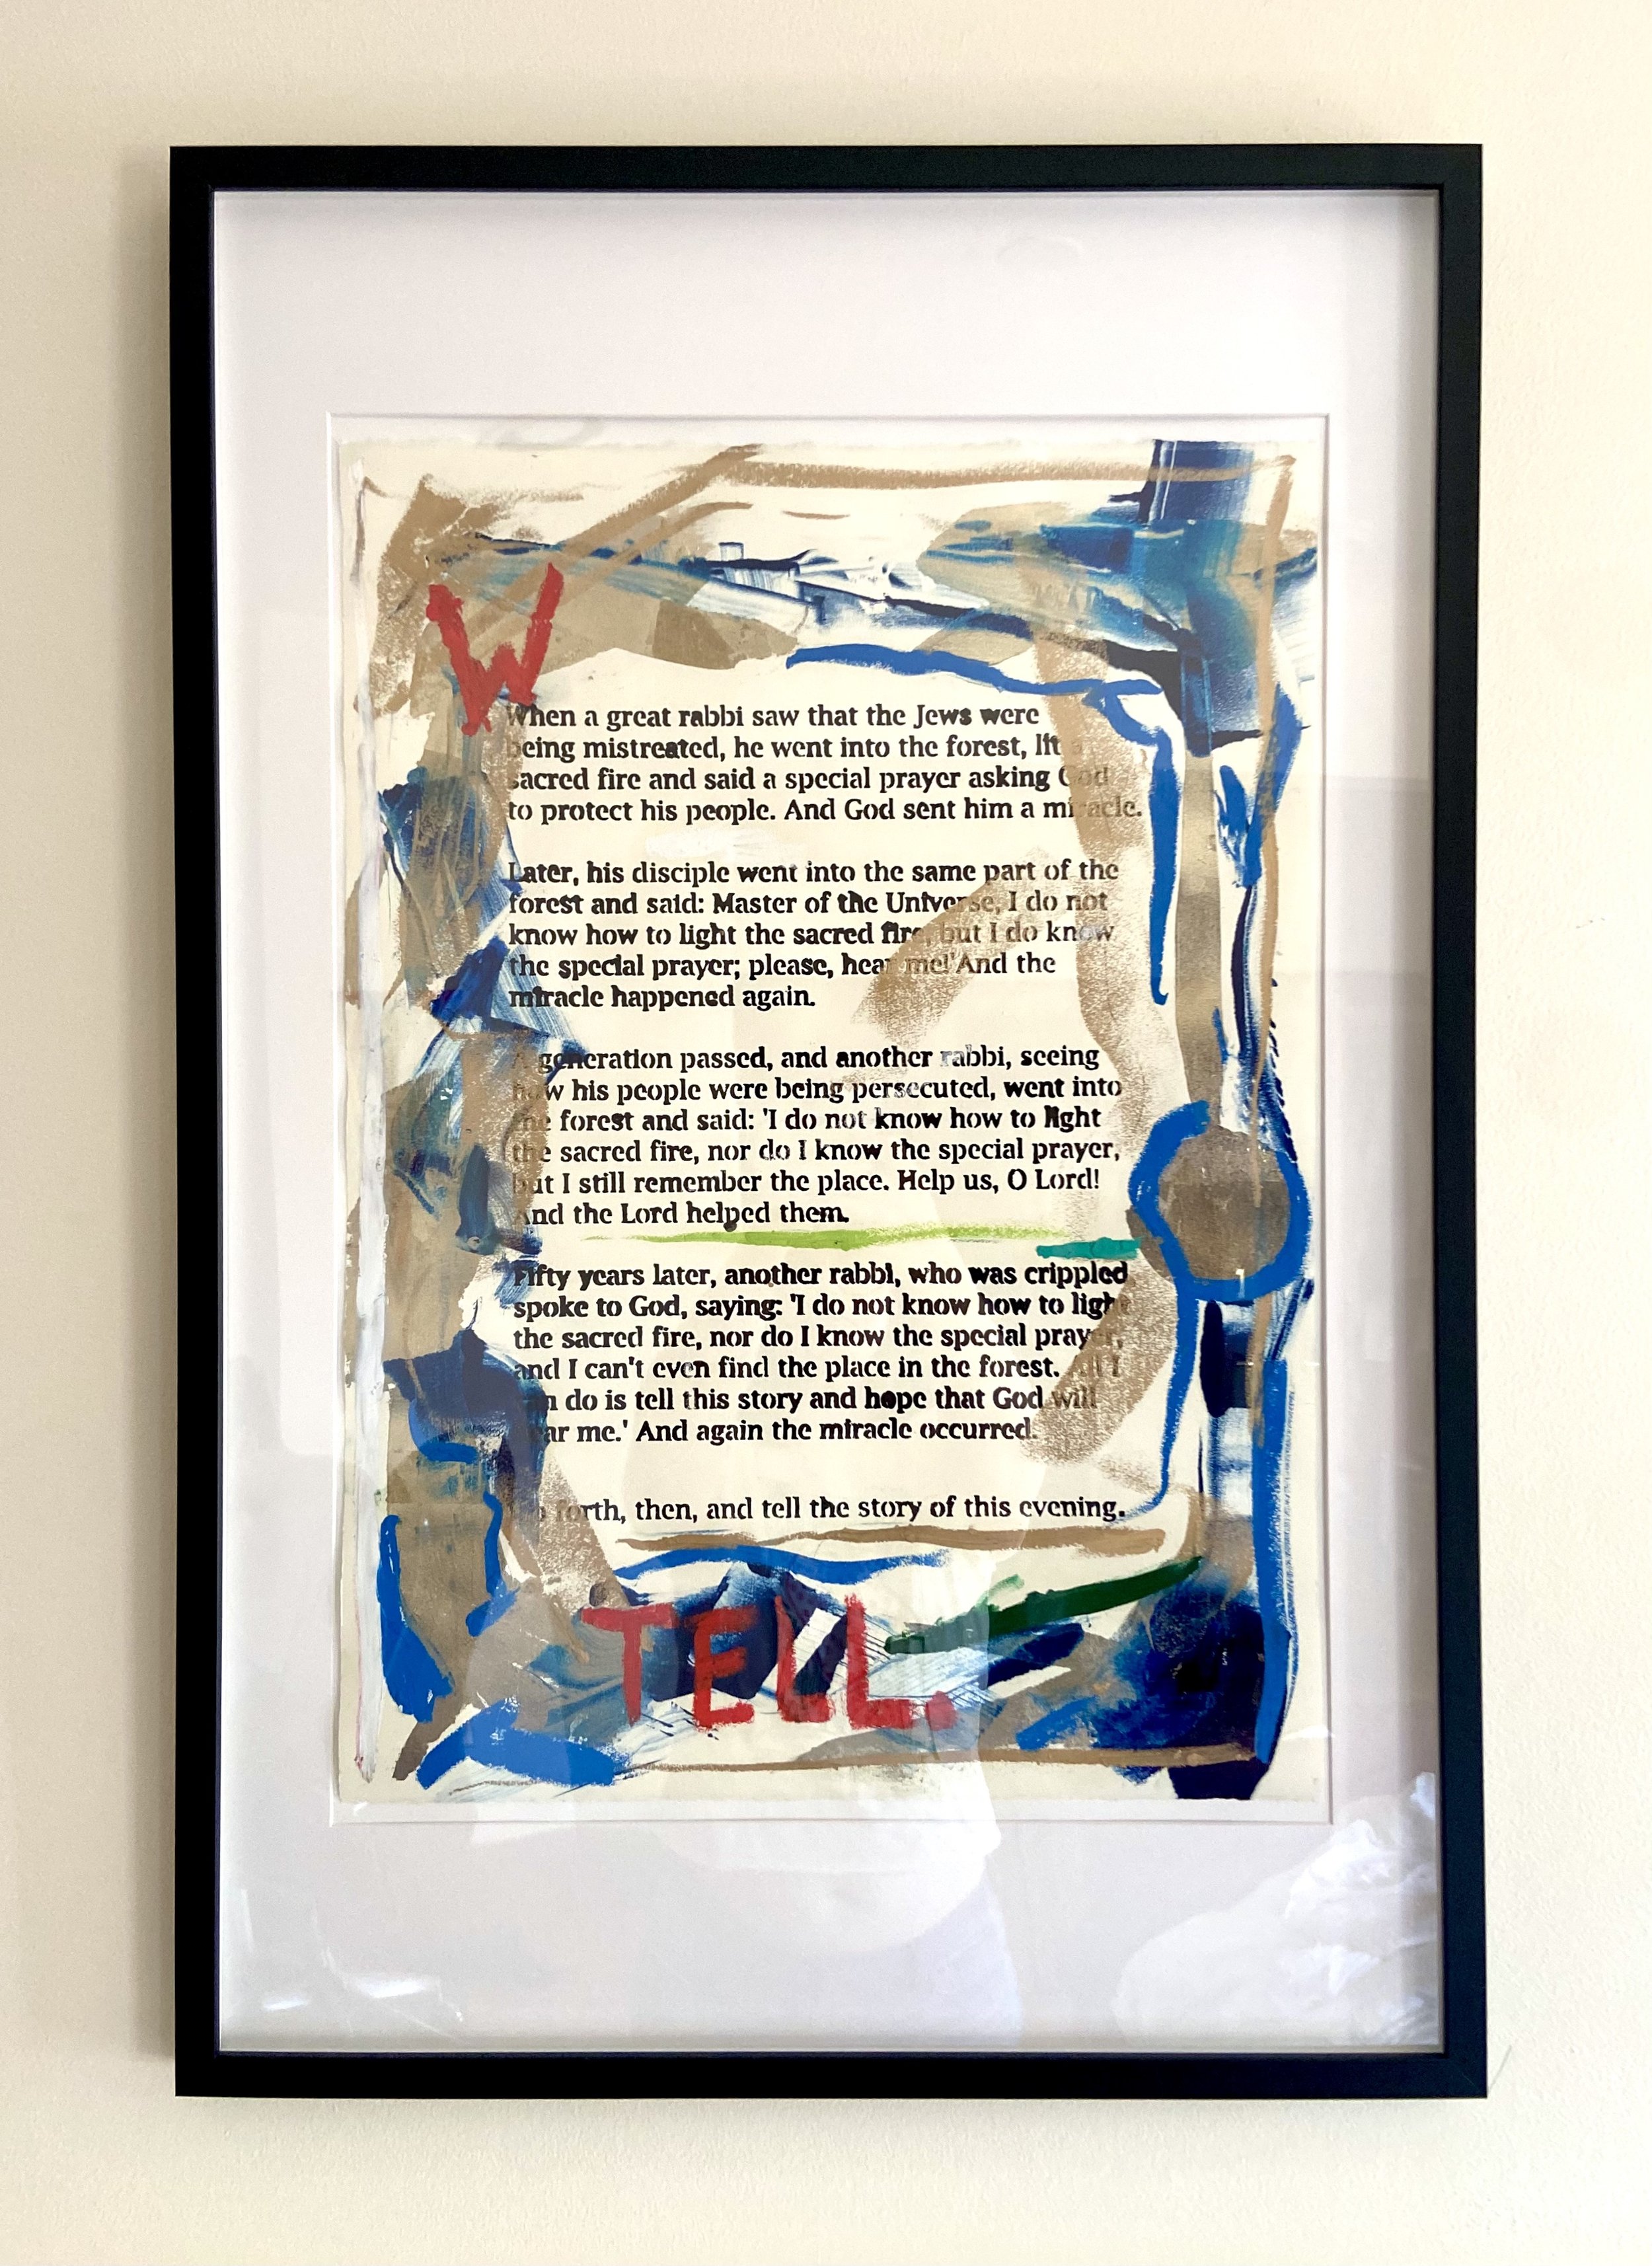 W
When a great rabbi saw that the Jews were
being mistreated, he went into the forest, lit a
sacred fire and said a special prayer asking God
to protect his people. And God sent him a miracle.
Later, his disciple went into the same part of the
forest and said: Master of the Universe, I do not
know how to light the sacred fire, but I do know
the special prayer; please, hear me!' And the
miracle happened again.
A generation passed, and another rabbi, seeing
how his people were being persecuted, went into
the forest and said: 'I do not know how to light
the sacred fire, nor do I know the special prayer,
but I still remember the place. Help us, O Lord!
And the Lord helped them.
Fifty years later, another rabbi, who was crippled
spoke to God, saying: 'I do not know how to light
the sacred fire, nor do I know the special prayer,
and I can't even find the place in the forest. All I
can do is tell this story and hope that God will
hear me.' And again the miracle occurred.
Go forth, then, and tell the story of this evening.
TELL.